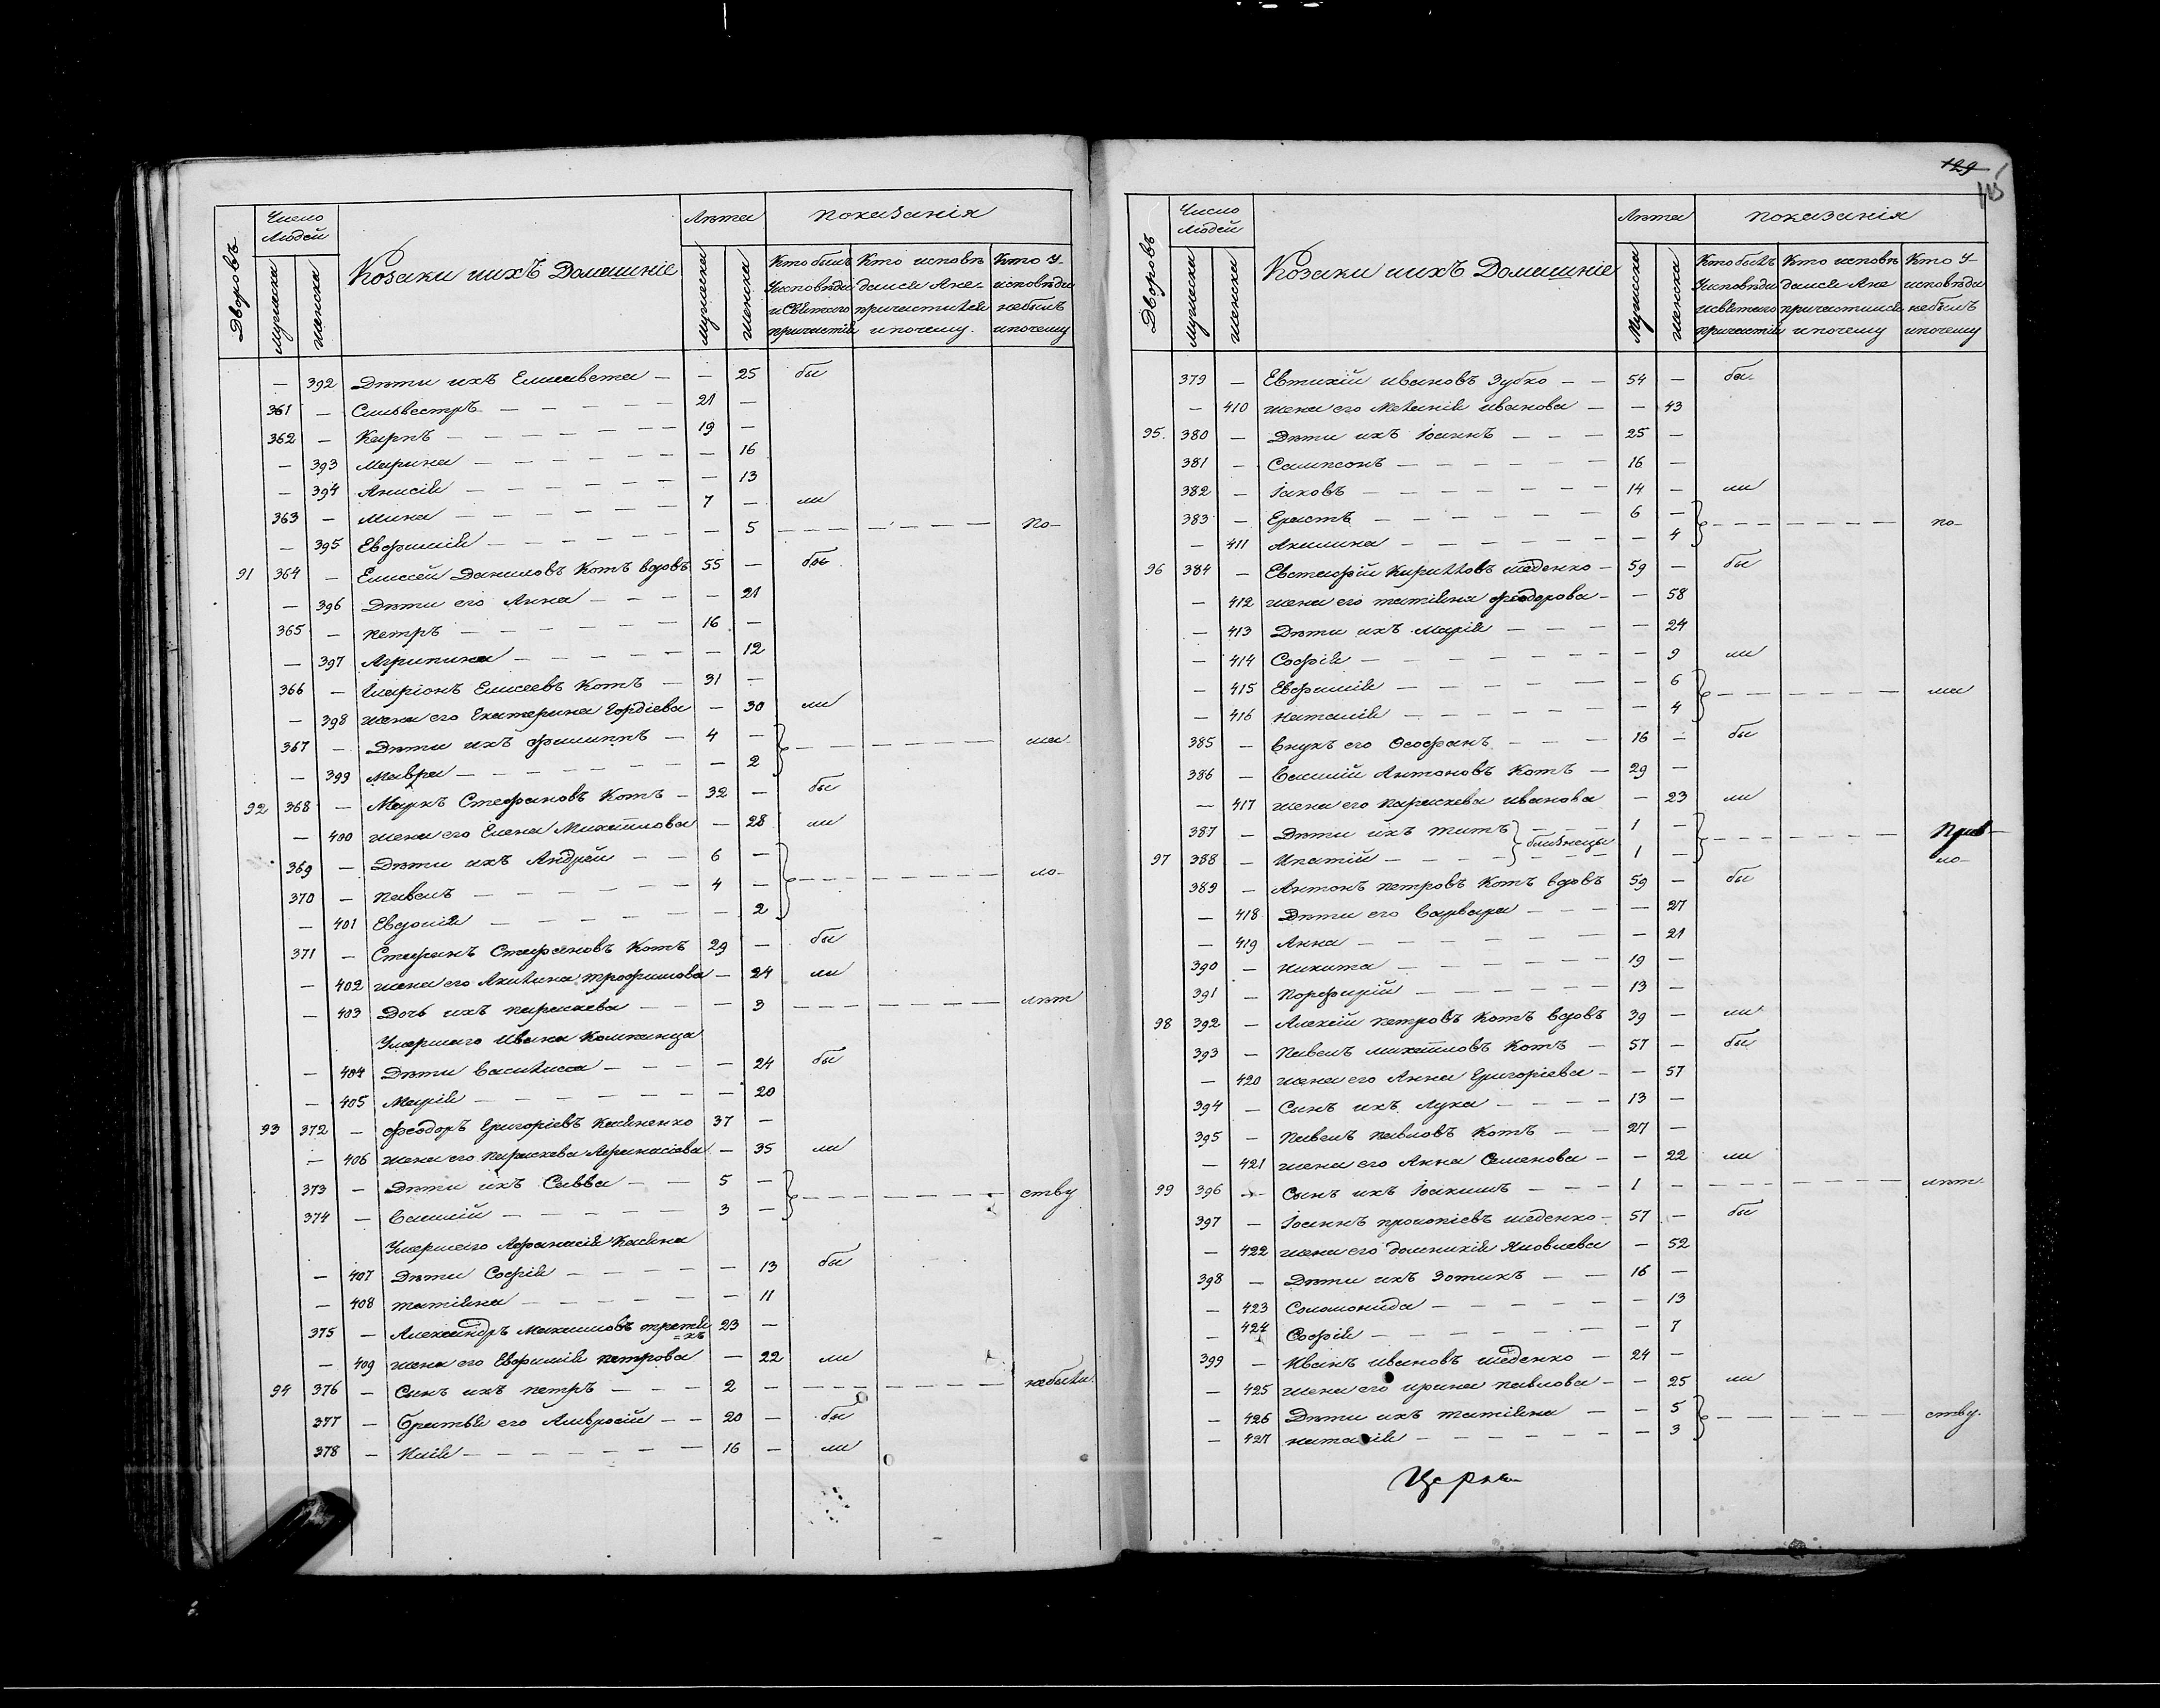 Дворовъ
Число Людей
Мужеска
Женска
Козаки и ихъ Домашніе
Лѣта
Мужеска
Женска
Показанія
Кто былъ У исповѣди и Святаго причастія
Кто исповѣдался А не причастился и почему.
Кто У исповѣди небылъ и почему
— 392 Дѣти ихъ Елисавета — — 25 бы
361 — Сильвестръ 21 —
362 — Карпъ 19 —
— 393 Марина — 16
— 394 Анисія — 13
363 — Мина 7 — ли
— 395 Евфимія — 5 По-
91 364 — Елисей Даниловъ Котъ вдовъ 55 — бы
— 396 Дѣти его Анна — 21
365 — Петръ 16 —
— 397 Агрипина — 12
366 — Иларіонъ Елисеевъ Котъ — 31 —
— 398 жена его Екатерина Гордіева — 30 ли
367 — Дѣти ихъ Филиппъ — 4 —
— 399 Мавра — 2 ма-
92 368 — Маркъ Стефановъ Котъ — 32 — бы
— 400 жена его Елена Михайлова — 28 ли
369 — Дѣти ихъ Андрей 6 —
370 — Павелъ 4 — ло-
— 401 Евдокія — 2
371 — Стефанъ Стефановъ Котъ 29 — бы
— 402 жена его Акилина Трофимова — 24 ли
— 403 Дочь ихъ Параскева — 3 лѣт
Умершаго Ивана Компанца
— 404 Дѣти Василисса — 24 бы
— 405 Марія — 20
93 372 — Феодоръ Григоріевъ Касяненко 37 —
— 406 жена его Параскева Афанасіева — 35 ли
373 — Дѣти ихъ Савва 5 —
374 — Василій 3 — ству
Умершаго Афанасія Касяна
— 407 Дѣти Софія — 13 бы
— 408 Татіяна — 11
375 — Александръ Михаиловъ 23 —
— 409 жена его Евфимія Петрова — 22 ли
94 376 — Сынъ ихъ Петръ 2 — небыли
377 — Братья его Амвросій — 20 — бы
378 — Илія 16 — ли
129
115
Дворовъ
Число Людей
Мужеска
Женска
Козаки и ихъ Домашніе
Лѣта
Мужеска
Женска
Показанія
Кто былъ У исповѣди и святаго причастія
Кто исповѣдался А не причастился и почему
Кто У исповѣди небылъ и почему
379 — Евтихій Ивановъ Зубко — 54 — бы-
— 410 жена его Меланія Иванова — — 43
95. 380 — Дѣти ихъ Іоаннъ 25 —
381 — Сампсонъ 16 —
382 — Іаковъ 14 — ли
383 — Ерастъ 6 —
— 411 Акилина — 4 по-
96 384 — Евстафій Кирилловъ Шеденко — 59 — бы
— 412 жена его Татіяна Феодорова — — 58
— 413 Дѣти ихъ Марія — 24
— 414 Софія — 9 ли
— 415 Евфимія — 6
— 416 Наталія — 4 ма
385 — Внукъ его Феофанъ 16 — бы
386 — Василій Антоновъ Котъ — 29 —
— 417 жена его Параскева Иванова — 23 ли
387 — Дѣти ихъ Титъ 1 —
близнецы
97 388 — Ипатій 1 —
ло-
389 — Антонъ Петровъ Котъ вдовъ 59 — бы
— 418 Дѣти его Варвара — 27
— 419 Анна — 21
390 — Никита 19 —
391 — Порфирій 13 —
98 392 — Алексій Петровъ Котъ вдовъ 39 — ли
393 — Павелъ Михайловъ Котъ — 57 — бы
— 420 жена его Анна Григоріева — — 57
394 — Сынъ ихъ Лука 13 —
395 — Павелъ Павловъ Котъ — 27 —
— 421 жена его Анна Семенова — — 22 ли
99 396 — Сынъ ихъ Іоакимъ 1 — лѣт.
397 — Іоаннъ Прокопіевъ Шеденко — 57 — бы
— 422 жена его Домникія Яковлева — 52
398 — Дѣти ихъ Зотикъ 16 —
— 423 Соломонида — 13
— 424 Софія — 7
399 — Иванъ Ивановъ Шеденко — 24 —
— 425 жена его Ирина Павлова — — 25 ли
— 426 Дѣти ихъ Татіяна — 5
— 427 Наталія — 3 ству.
Церкви